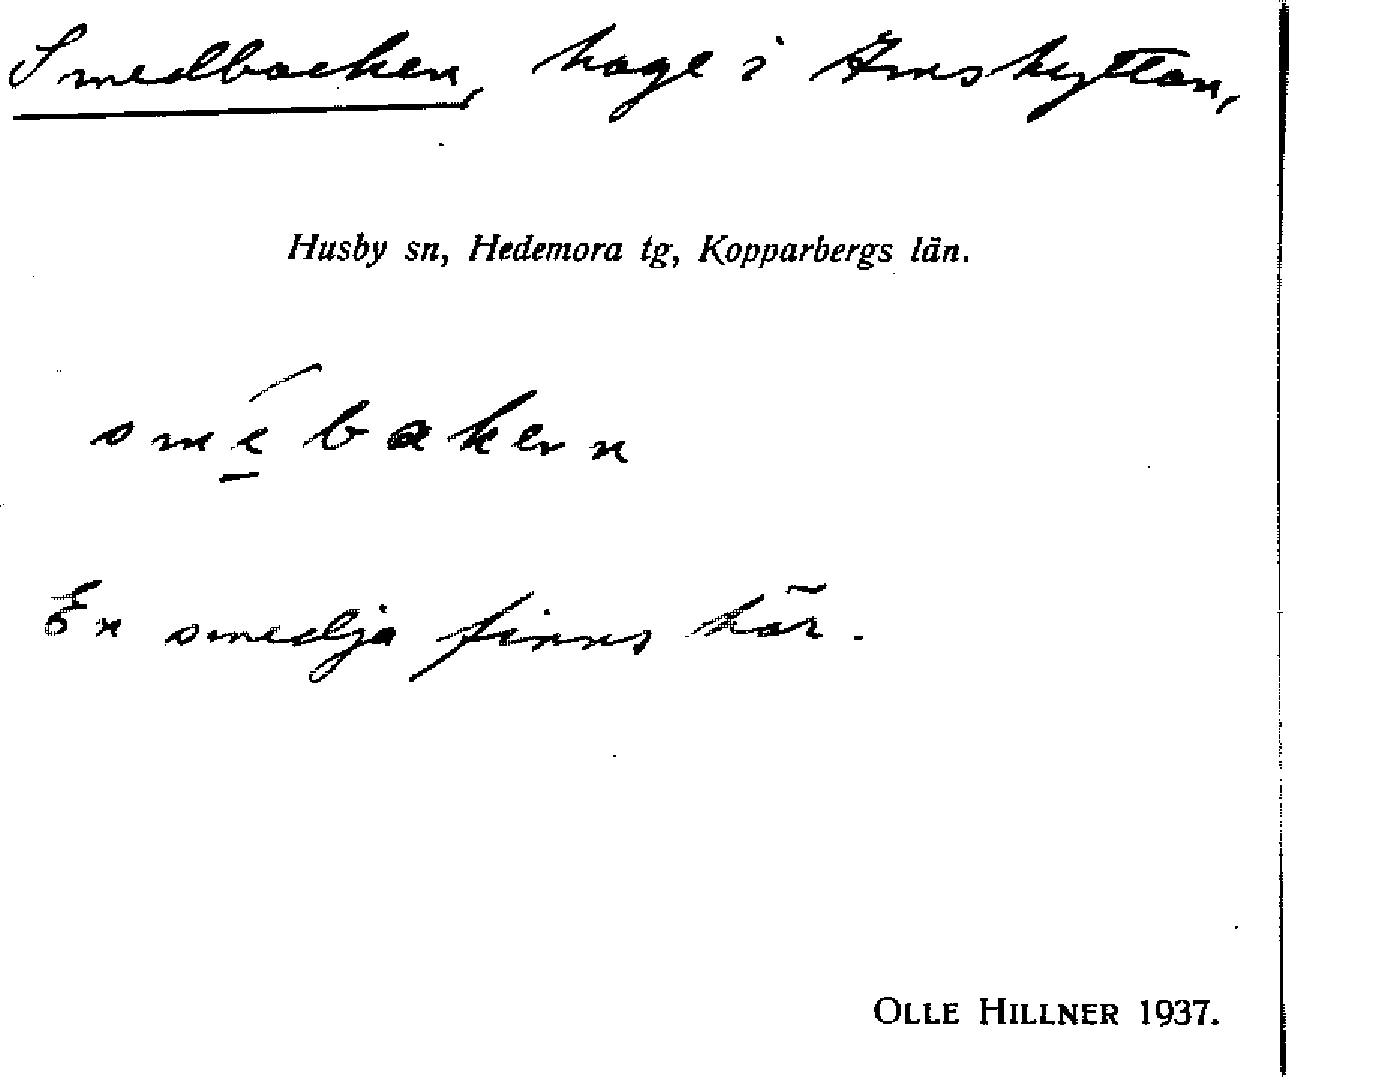 Smedbacken, hage i Amshyttan,
Husby sn, Hedemora tg, Kopparbergs län.
En smedja finns här.
OLLE HILLNER 1937.